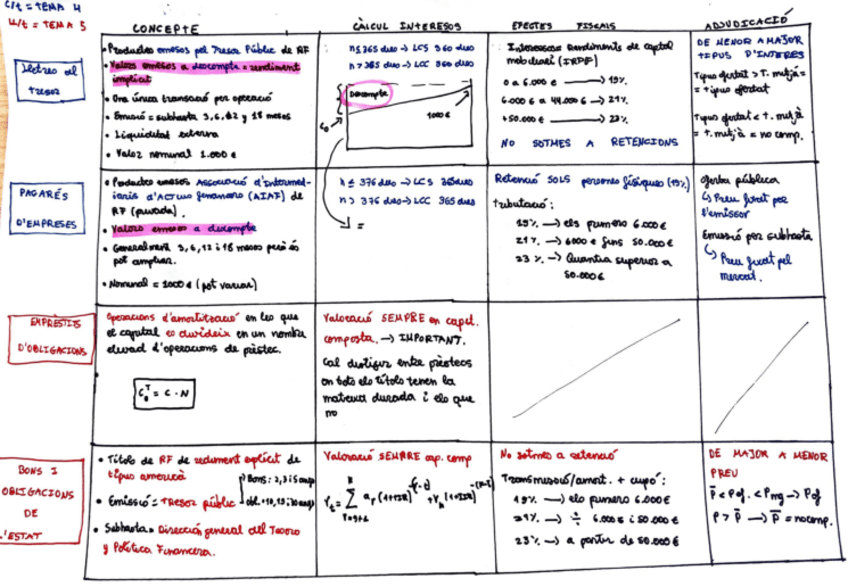 C/t = TEMA 4
U/t = TEMA 5
CONCEPTE
CÀLCUL INTERESOS
EFECTES FISCALS
ADJUDICACIÓ
Lletres del
tresor
• Productes emesos pel Tresor Públic de RF
• Valors emesos a descompte = rendiment
implícit
• Una única transacció per operació
• Emissió = subhasta 3, 6, 12 y 18 mesos
• Liquiditat extrema
• Valor nominal 1.000 €
n ≤ 365 dies → LCS 360 dies
n > 365 dies → LCC 360 dies
Descompte
C₀
1000 €
Interessos = Rendiments de capital
mobiliari (IRPF)
0 a 6.000 € → 19%
6.000 € a 44.000 € → 21%
+50.000 € → 23%
NO SOTMES A RETENCIONS
DE MENOR A MAJOR
TIPUS D'INTERÈS
Tipus ofertat > T. mitjà =
= tipus ofertat
Tipus ofertat < t. mitjà
= T. mitjà = no comp.
PAGARÉS
D'EMPRESES
• Productes emesos Associació d'Intermed-
iaris d'Actius financers (AIAF) de
RF (privada).
• Valors emesos a descompte
• Generalment 3, 6, 12 i 18 mesos però es
pot ampliar.
• Nominal = 1000 € (pot variar)
n ≤ 376 dies → LCS 365 dies
n > 376 dies → LCC 365 dies
=
Retenció SOLS persones físiques (19%)
Tributació:
19% → els primers 6.000 €
21% → 6000 € fins 50.000 €
23% → Quantia superior a
50.000 €
Oferta pública
↳ Preu fixat per
l'emissor
Emissió per subhasta
↳ Preu fixat pel
mercat.
EMPRÈSTITS
D'OBLIGACIONS
Operacions d'amortització en les que
el capital es divideix en un nombre
elevat d'operacions de préstec.
C₀ᵀ = C · N
Valoració SEMPRE en capit.
composta. → IMPORTANT.
Cal distigir entre préstecs
on tots els títols tenen la
mateixa durada i els que
no
BONS I
OBLIGACIONS
DE
L'ESTAT
• Títols de RF de rediment explícit de
tipus americà
Bons: 2, 3 i 5 anys
• Emissió: TRESOR públic
obl. = 10, 15 i 30 anys
• Subhasta = Dirección general del Tesoro
y Política Financera.
Valoració SEMPRE cap. comp
No sotmes a retenció
Transmissió/amort. + cupó:
19% → els primers 6.000 €
21% → ÷ 6.000 € i 50.000 €
23% → a partir de 50.000 €
DE MAJOR A MENOR
PREU
P̄ < Pof. < Pmg → Pof
P > P̄ → P̄ = no comp.